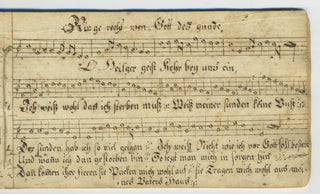 Ringe recht wen Gott des gnade
O Heilger geist Kehr bey uns ein
Ich weiß wohl daß ich sterben muß Weiß meiner sünden keine Buß
Der sünden hab ich so viel gethan Ich Weiß Nicht wie ich vor Gott soll
Und wann ich dan gestorben bin So legt man mich in
Dan kommen ihre vieren sie mich wohl auf sie Tragen mich wohl aus mei
nes Vaters Hauß